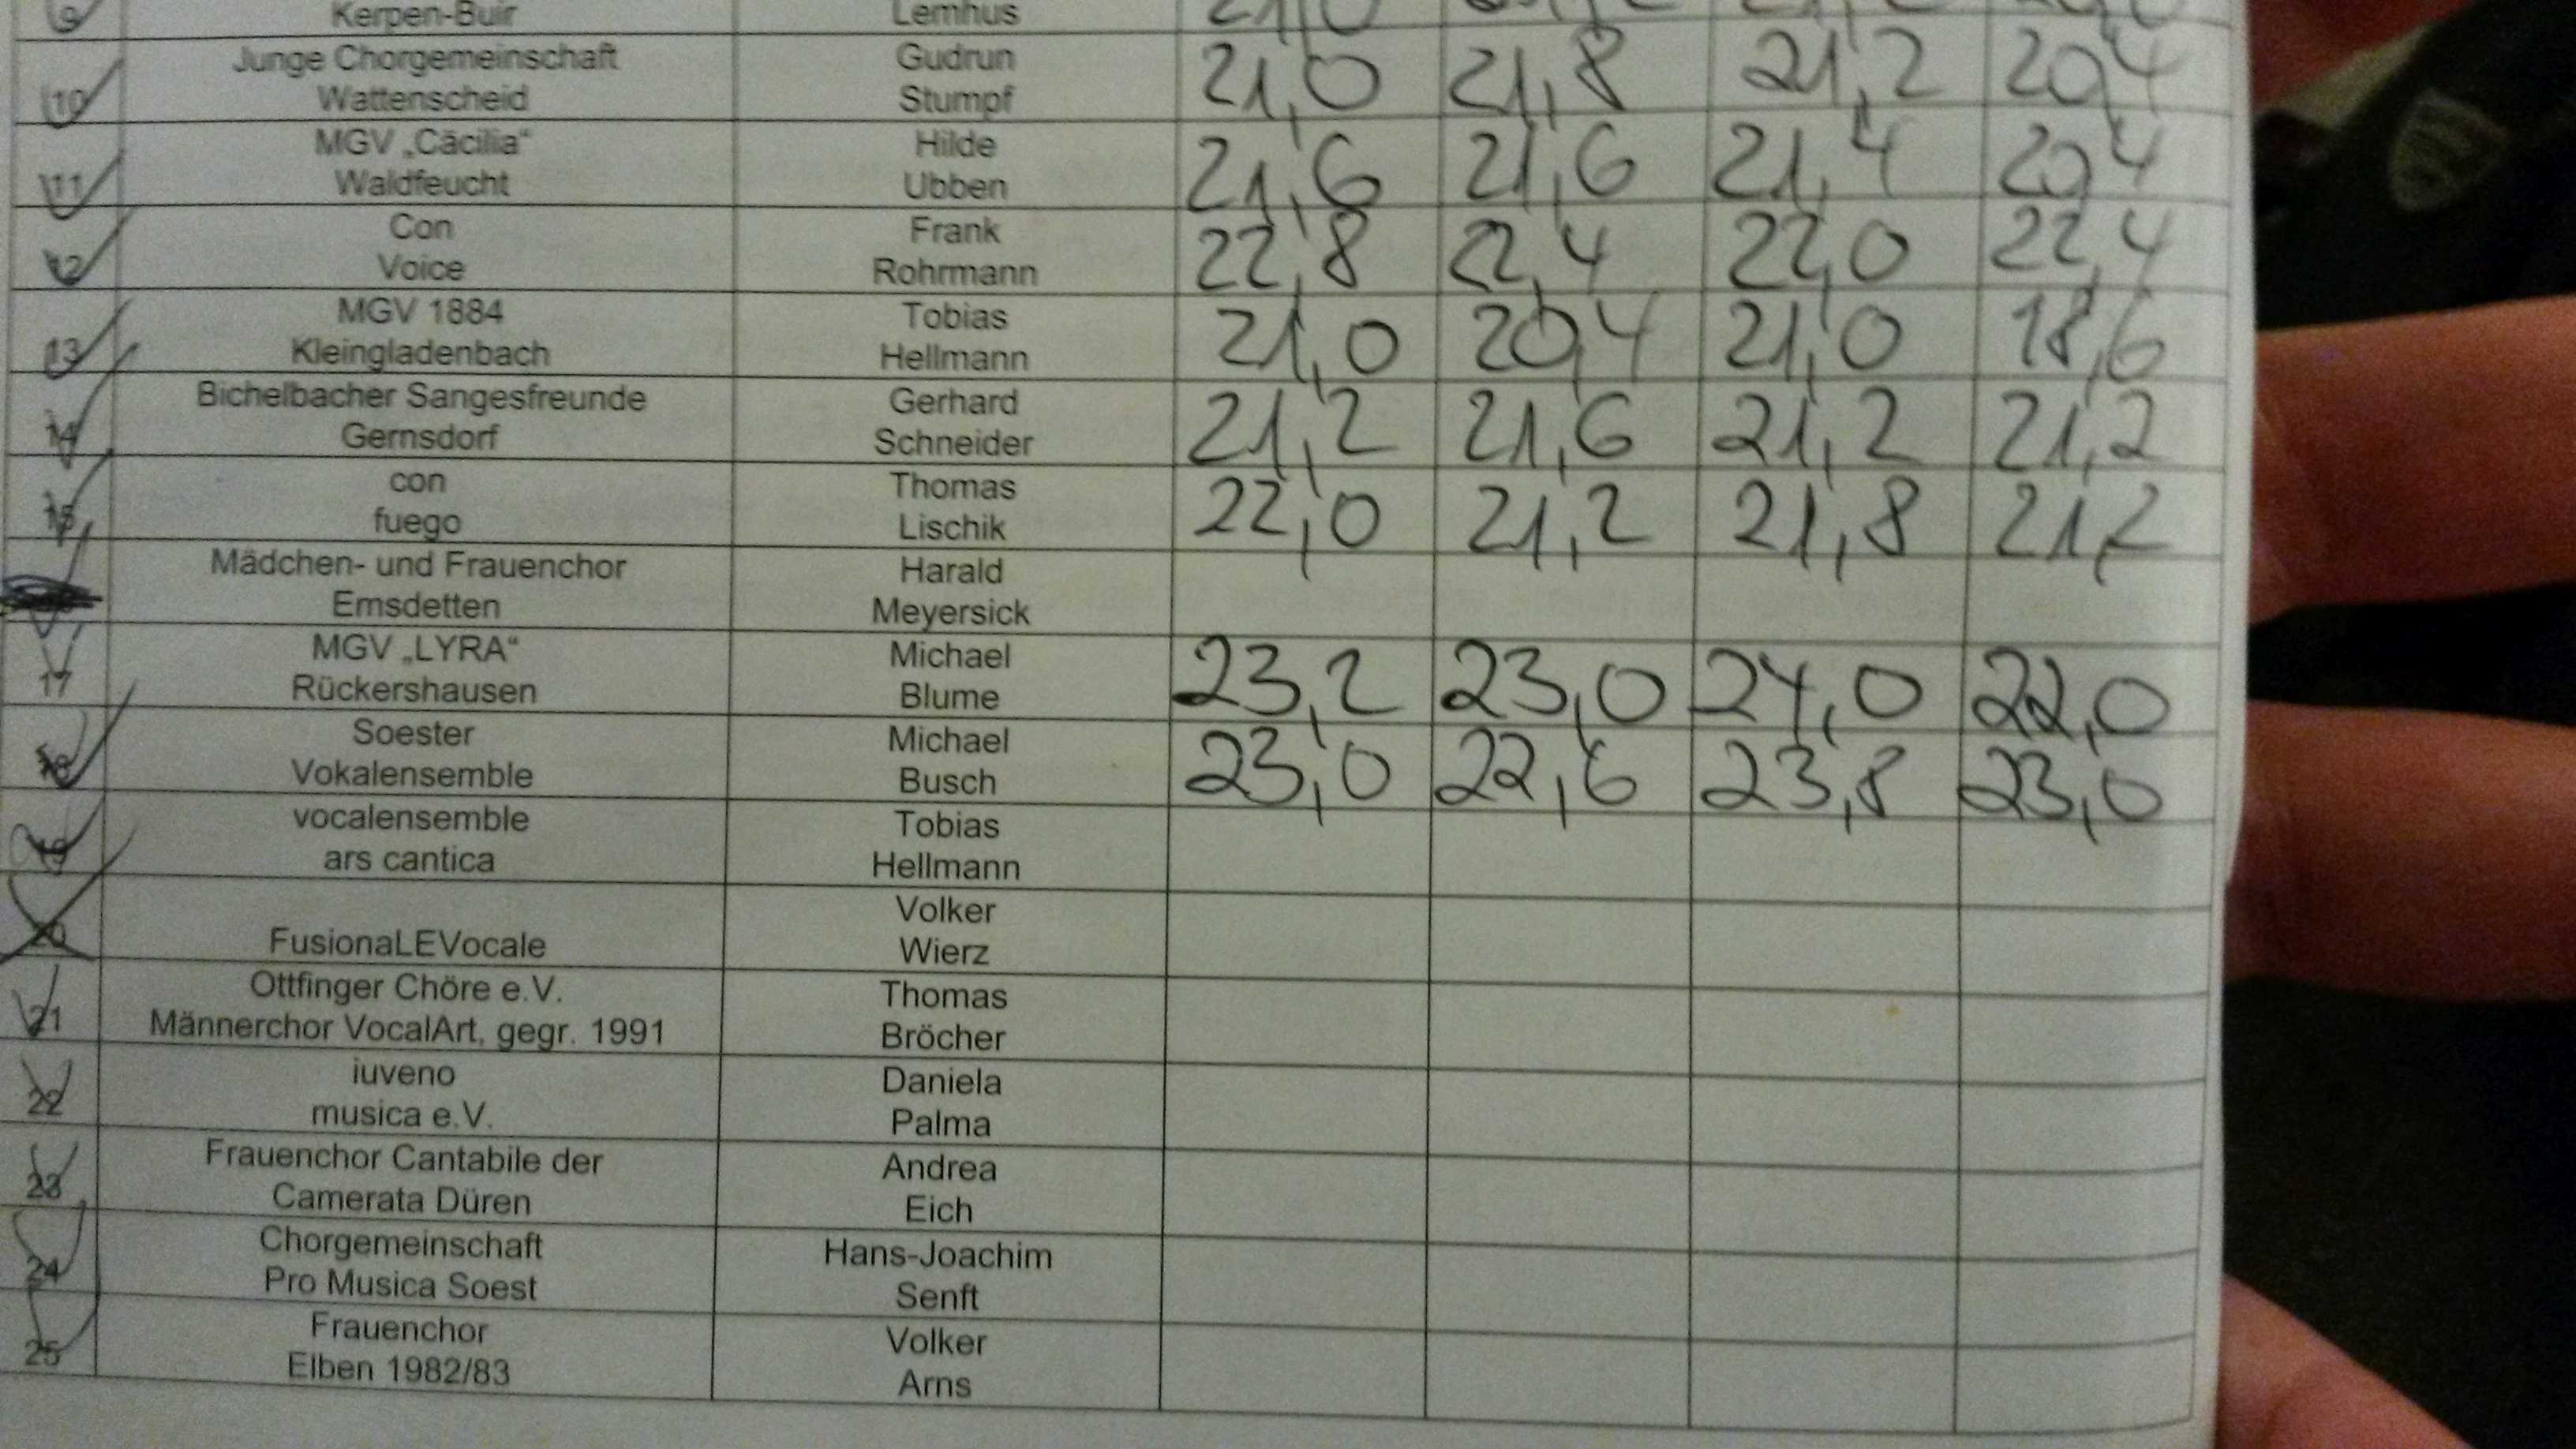 9 Kerpen-Buir Lemhus 21,0
Junge Chorgemeinschaft Gudrun
10 Wattenscheid Stumpf 21,0 21,8 21,2 20,4
MGV „Cäcilia“ Hilde
11 Waldfeucht Ubben 21,6 21,6 21,4 20,4
Con Frank
12 Voice Rohrmann 22,8 22,4 22,0 22,4
MGV 1884 Tobias
13 Kleingladenbach Hellmann 21,0 20,4 21,0 18,6
Bichelbacher Sangesfreunde Gerhard
14 Gernsdorf Schneider 21,2 21,6 21,2 21,2
con Thomas
15 fuego Lischik 22,0 21,2 21,8 21,2
Mädchen- und Frauenchor Harald
Emsdetten Meyersick
MGV „LYRA“ Michael
17 Rückershausen Blume 23,2 23,0 24,0 22,0
Soester Michael
18 Vokalensemble Busch 23,0 22,6 23,8 23,0
vocalensemble Tobias
19 ars cantica Hellmann
Volker
20 FusionaLEVocale Wierz
Ottfinger Chöre e.V. Thomas
21 Männerchor VocalArt, gegr. 1991 Bröcher
iuveno Daniela
22 musica e.V. Palma
Frauenchor Cantabile der Andrea
23 Camerata Düren Eich
Chorgemeinschaft Hans-Joachim
24 Pro Musica Soest Senft
Frauenchor Volker
25 Elben 1982/83 Arns